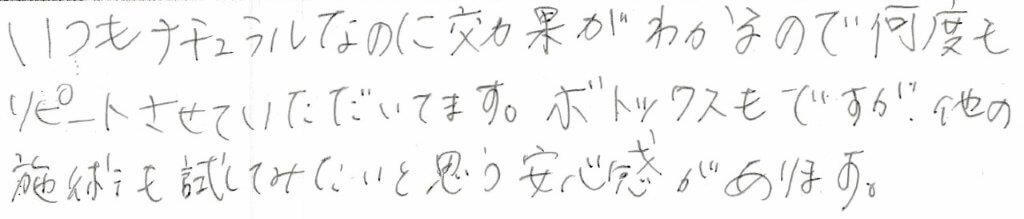 いつもナチュラルなのに効果がわかるので何度も
リピートさせていただいてます。ボトックスもですが、他の
施術も試してみたいと思う安心感があります。